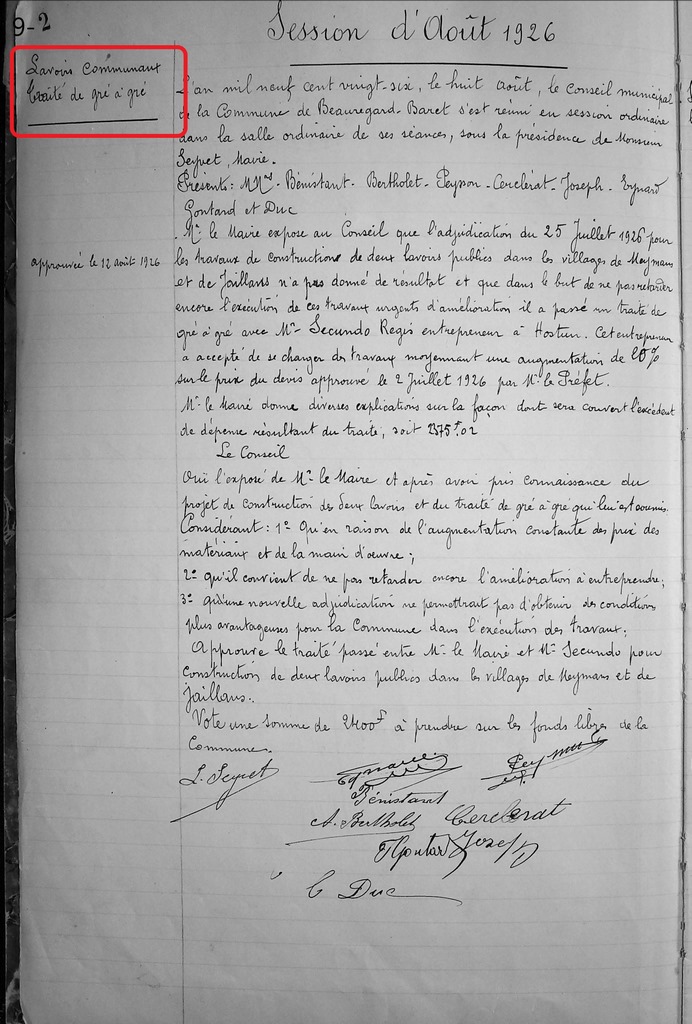 9-2
Session d'Août 1926
Lavoirs Communaux
Traité de gré à gré
L'an mil neuf cent vingt-six, le huit août, le Conseil municipal
de la Commune de Beauregard-Baret s'est réuni en session ordinaire
dans la salle ordinaire de ses séances, sous la présidence de Monsieur
Seyvet, Maire.
Présents: MM. Bénistant - Bertholet - Peysson - Cerclérat - Joseph - Eynard
Gontard et Duc
Mr le Maire expose au Conseil que l'adjudication du 25 Juillet 1926 pour
approuvée le 12 août 1926
les travaux de construction de deux lavoirs publics dans les villages de Meymans
et de Jaillans n'a pas donné de résultat et que dans le but de ne pas retarder
encore l'exécution de ces travaux urgents d'amélioration il a passé un traité de
gré à gré avec Mr Secundo Regis entrepreneur à Hostun. Cet entrepreneur
a accepté de se charger des travaux moyennant une augmentation de 10%
sur le prix du devis approuvé le 2 Juillet 1926 par Mr le Préfet.
Mr le Maire donne diverses explications sur la façon dont sera couvert l'excédent
de dépense résultant du traité, soit 2375f,02
Le Conseil
Ouï l'exposé de Mr le Maire et après avoir pris connaissance du
projet de construction des deux lavoirs et du traité de gré à gré qui lui est soumis.
Considérant: 1º Qu'en raison de l'augmentation constante des prix des
matériaux et de la main d'oeuvre;
2º qu'il convient de ne pas retarder encore l'amélioration à entreprendre;
3º qu'une nouvelle adjudication ne permettrait pas d'obtenir des conditions
plus avantageuses pour la Commune dans l'exécution des travaux;
Approuve le traité passé entre Mr le Maire et Mr Secundo pour
construction de deux lavoirs publics dans les villages de Meymans et de
Jaillans.
Vote une somme de 2400f à prendre sur les fonds libres de la
Commune.
L. Seyvet
Eynard
Bénistant
A. Bertholet
Cerclerat
Gontard
Joseph
Duc